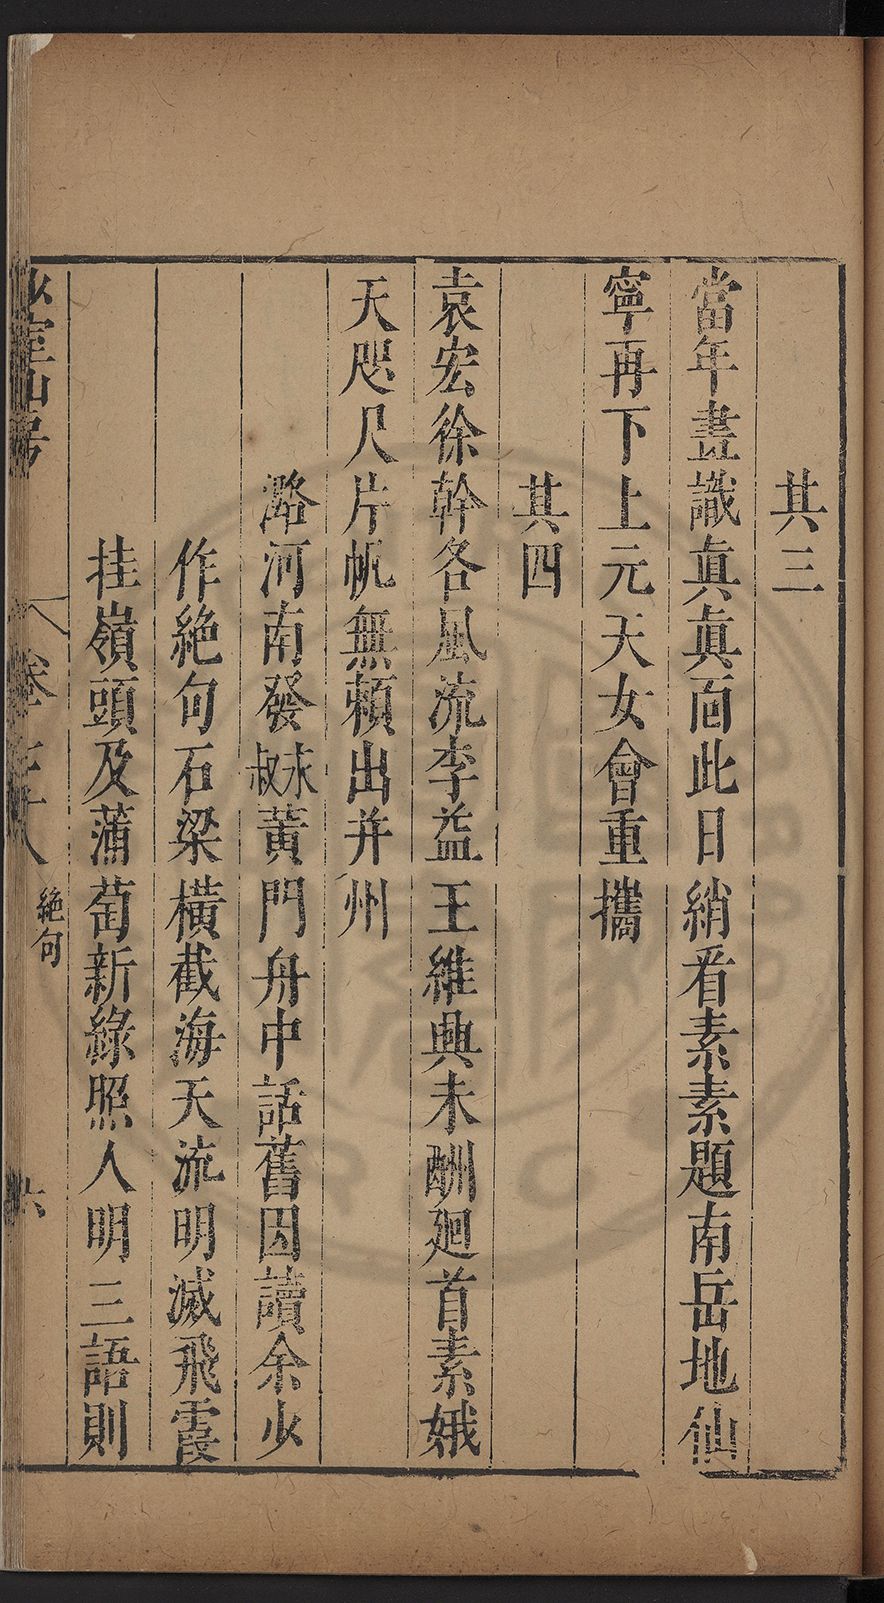 其三
當年畫識眞眞面此日綃看素素題南岳地仙
寧再下上元天女會重攜
其四
袁宏徐幹各風流李益王維興未酬廻首素娥
天咫尺片帆無賴出并州
潞河南發黃門舟中話舊因讀余少
作絶句石梁橫截海天流明滅飛霞
挂嶺頭及蒲萄新綠照人明三語則
山房
卷三十八
絶句
六